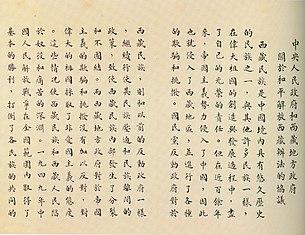 中央人民政府和西藏地方政府
關於和平解放西藏辦法的協議
西藏民族是中國境內具有悠久歷史
的民族之一，與其他許多民族一樣，
在偉大祖國的創造與發展過程中，盡
了自己的光榮的責任。但在近百餘年
來，帝國主義勢力侵入了中國，因此
也就侵入了西藏地區，並進行了各種
的欺騙和挑撥。國民黨反動政府對於
西藏民族，則和以前的反動政府一樣，
繼續行使其民族壓迫和民族離間的
政策，致使西藏民族內部發生了分裂
和不團結。而西藏地方政府對於帝國
主義的欺騙和挑撥沒有加以反對，對
偉大的祖國採取了非愛國主義的態度
。這些情況使西藏民族和西藏人民陷
於奴役和痛苦的深淵。一九四九年中
國人民解放戰爭在全國範圍內取得了
基本的勝利，打倒了各民族的共同的